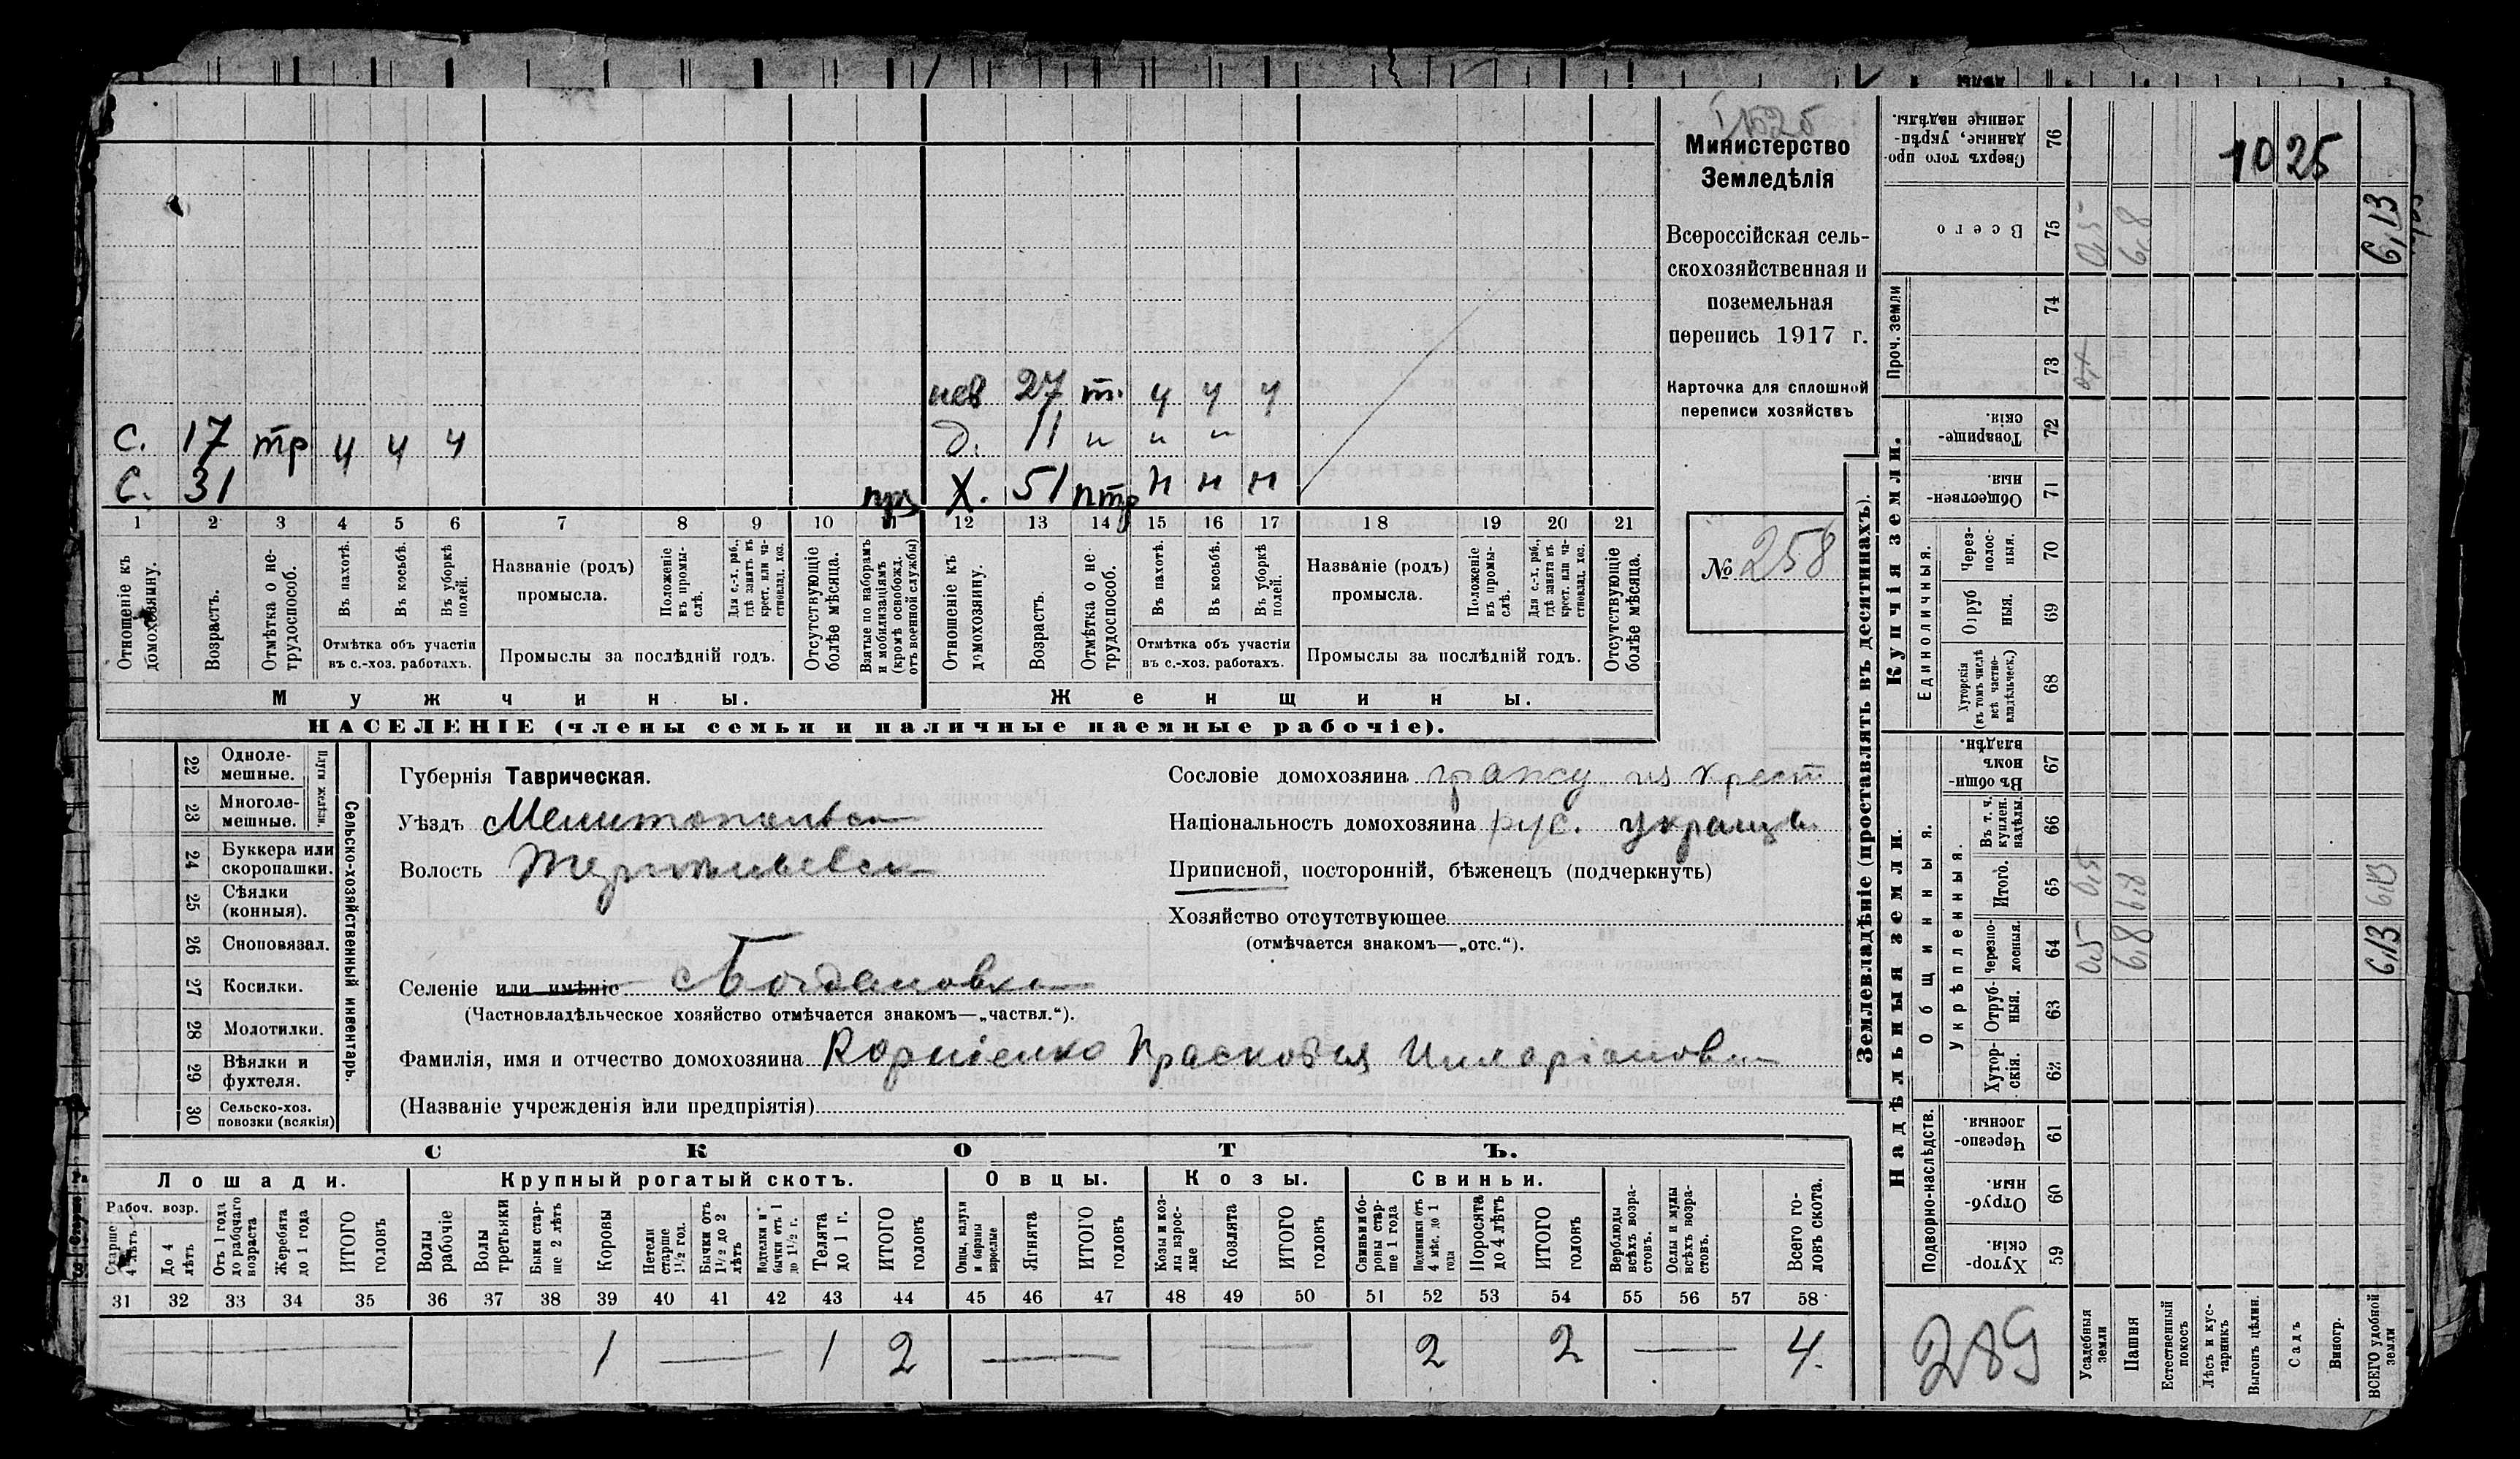 Министерство
Земледѣлія
Всероссійская сель-
скохозяйственная и
поземельная
перепись 1917 г.
Карточка для сплошной
переписи хозяйствъ
№ 258
нев 27 т. ч ч ч
С. 17 тр ч ч ч д. 11 " " "
С. 31 прз Х. 51 птр н н н
1 2 3 4 5 6 7 8 9 10 11 12 13 14 15 16 17 18 19 20 21
Отношеніе къ домохозяину.
Возрастъ.
Отмѣтка о не-трудоспособ.
Въ пахотѣ.
Въ косьбѣ.
Въ уборкѣ полей.
Отмѣтка объ участіи
въ с.-хоз. работахъ.
Названіе (родъ)
промысла.
Положеніе въ промы-слѣ.
Для с.-х. раб., гдѣ занятъ въ крест. или ча-стновлад. хоз.
Промыслы за послѣдній годъ.
Отсутствующіе болѣе мѣсяца.
Взятые по наборамъ и мобилизаціямъ (кромѣ освобожд. отъ военной службы)
Отношеніе къ домохозяину.
Возрастъ.
Отмѣтка о не-трудоспособ.
Въ пахотѣ.
Въ косьбѣ.
Въ уборкѣ полей.
Отмѣтка объ участіи
въ с.-хоз. работахъ.
Названіе (родъ)
промысла.
Положеніе въ промы-слѣ.
Для с.-х. раб., гдѣ занята въ крест. или ча-стновлад. хоз.
Промыслы за послѣдній годъ.
Отсутствующіе болѣе мѣсяца.
Мужчины. Женщины.
НАСЕЛЕНІЕ (члены семьи и наличные наемные рабочіе).
Сельско-хозяйственный инвентарь.
Плуги желѣзн.
22 Одноле-мешные.
23 Многоле-мешные.
24 Буккера или скоропашки.
25 Сѣялки (конныя).
26 Сноповязал.
27 Косилки.
28 Молотилки.
29 Вѣялки и фухтеля.
30 Сельско-хоз. повозки (всякія)
Губернія Таврическая.
Уѣздъ Мелитопольск
Волость
Селеніе или имѣніе с Богдановка
(Частновладѣльческое хозяйство отмѣчается знакомъ—„частвл.“).
Фамилія, имя и отчество домохозяина Корніенко Прасковья Илларіоновна
(Названіе учрежденія или предпріятія)
Сословіе домохозяина из крест
Національность домохозяина рус. украинц
Приписной, посторонній, бѣженецъ (подчеркнуть)
Хозяйство отсутствующее
(отмѣчается знакомъ—„отс.“).
СКОТЪ.
Лошади. Крупный рогатый скотъ. Овцы. Козы. Свиньи.
Рабоч. возр.
Старше 4 лѣтъ
До 4 лѣтъ
Отъ 1 года до рабочаго возраста
Жеребята до 1 года
ИТОГО головъ
Волы рабочіе
Волы третьяки
Быки стар-ше 2 лѣтъ
Коровы
Нетели старше 1½ год.
Бычки отъ 1½ до 2 лѣтъ
Подтелки и бычки отъ 1 до 1½ г.
Телята до 1 г.
ИТОГО головъ
Овцы, валухи и бараны взрослые
Ягнята
ИТОГО головъ
Козы и коз-лы взрос-лые
Козлята
ИТОГО головъ
Свиньи и бо-ровы стар-ше 1 года
Подсвинки отъ 4 мѣс. до 1 года
Поросята до 4 лѣтъ
ИТОГО головъ
Верблюды всѣхъ возра-стовъ.
Ослы и мулы всѣхъ возра-стовъ.
Всего го-ловъ скота.
31 32 33 34 35 36 37 38 39 40 41 42 43 44 45 46 47 48 49 50 51 52 53 54 55 56 57 58
1 — 1 2 — — 2 2 — 4.
Землевладѣніе (проставлять въ десятинахъ).
Купчія земли.
Надѣльныя земли.
Проч. земли
Единоличныя.
Общинныя.
Укрѣпленныя.
Подворно-наслѣдств.
76 Сверхъ того про-данные, укрѣп-ленные надѣлы.
75 Всего 0,5 6,8 6,13
74
73
72 Товарище-скія.
71 Обществен-ныя.
70 Через-полос-ныя.
69 Отруб ныя.
68 Хуторскія (въ томъ числѣ всѣ частно-владѣльческ.)
67 Въ общин-номъ владѣн.
66 Въ т. ч. куплен. надѣлы.
65 Итого. 0,5 6,8 6,13
64 Черезпо-лосныя. 0,5 6,8 6,13
63 Отруб-ныя.
62 Хутор-скія.
61 Черезпо-лосныя.
60 Отруб-ныя.
59 Хутор-скія.
1025
289
Усадебныя земли
Пашня
Естественный покосъ
Лѣсъ и кус-тарникъ
Выгонъ цѣлин.
Садъ
Виногр.
ВСЕГО удобной земли